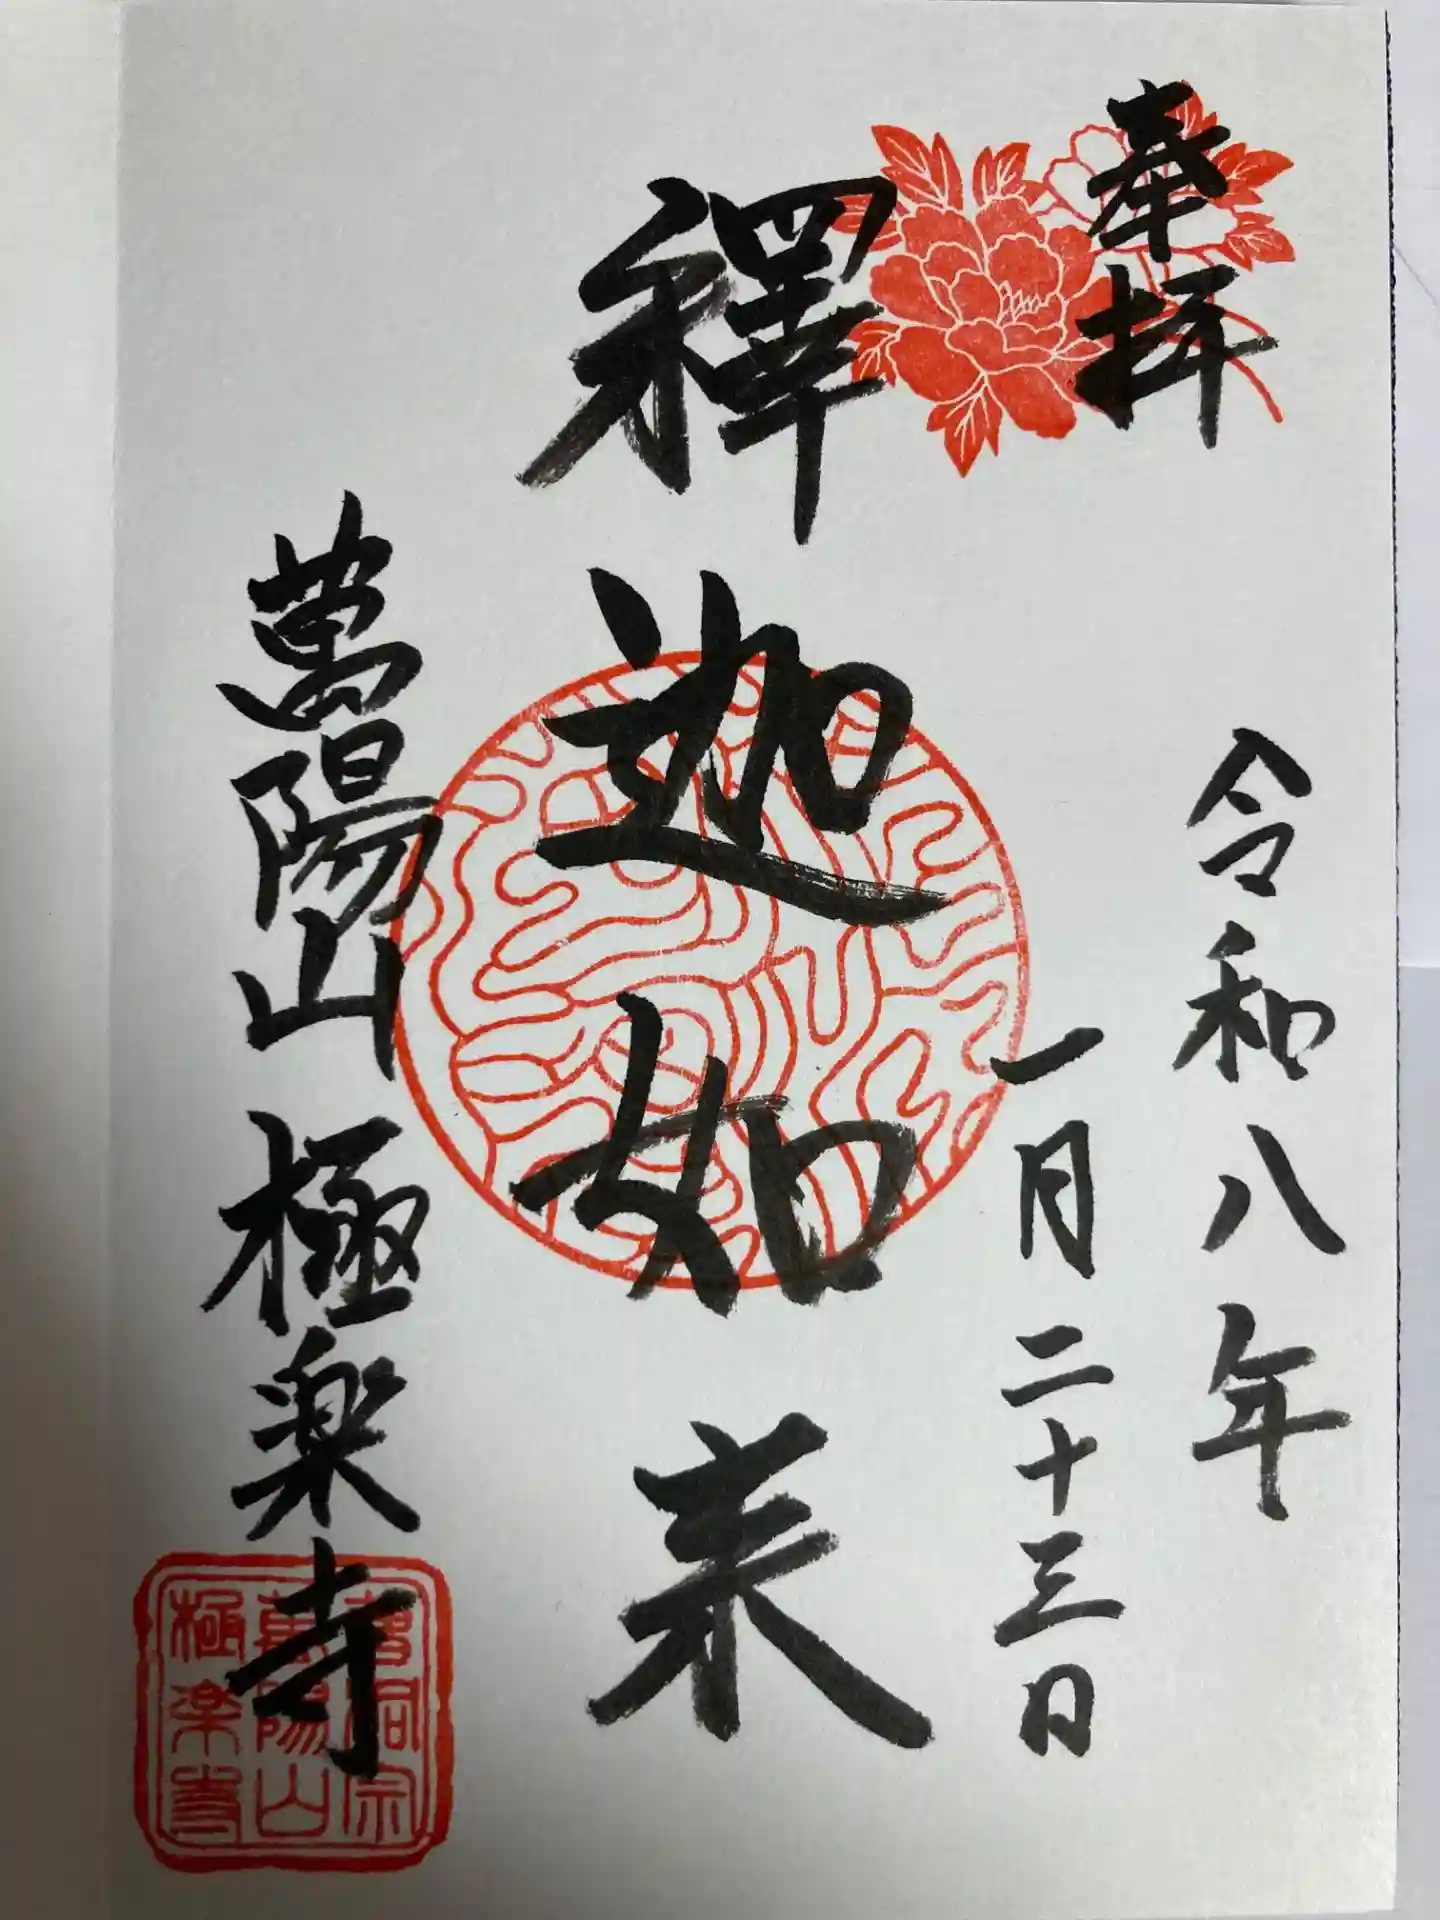 奉拝
令和八年
一月二十三日
釋迦如来
萬陽山 極楽寺
曹洞宗
萬陽山
極楽寺